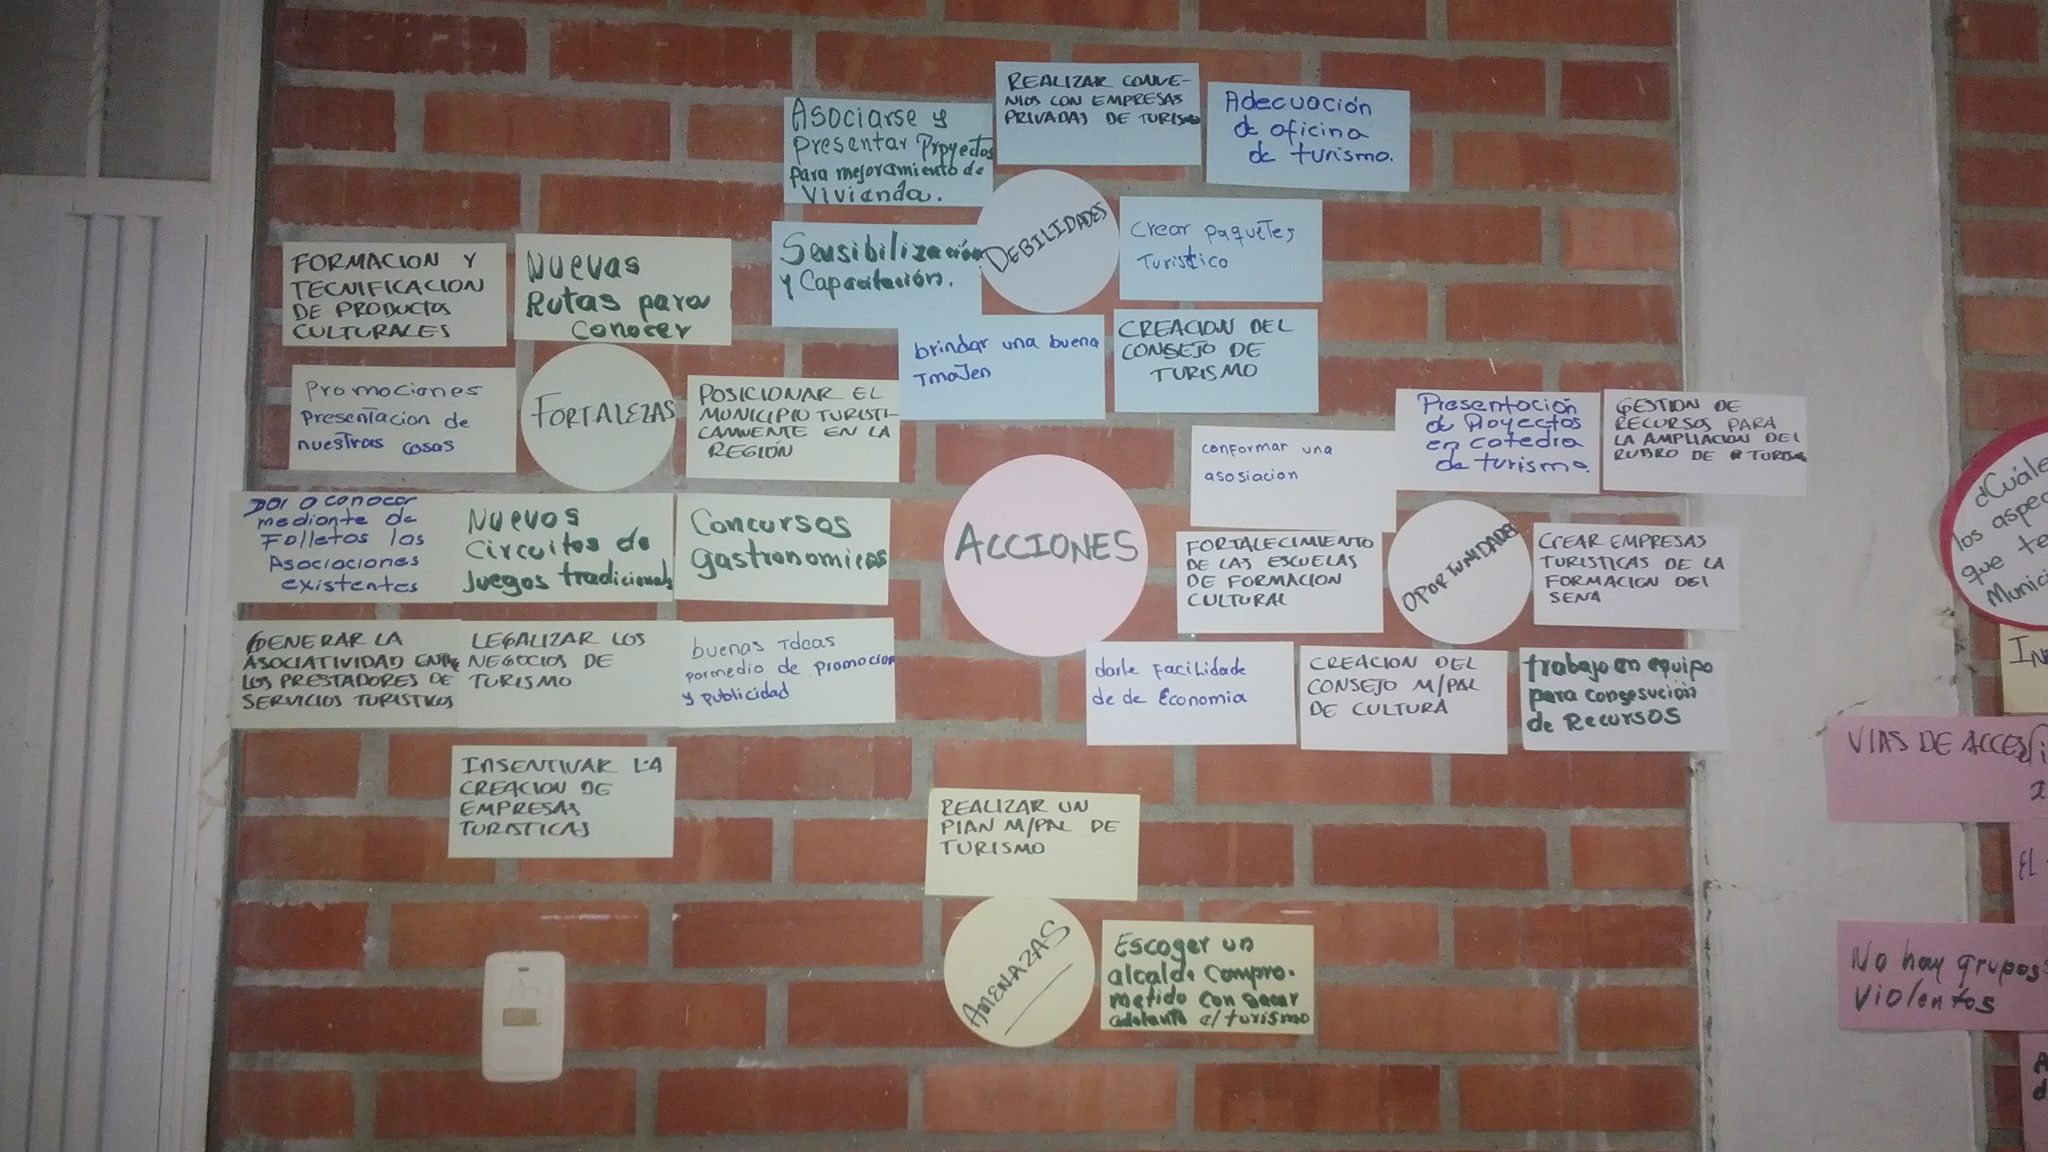 REALIZAR CONVE-
NIOS CON EMPRESAS
PRIVADAS DE TURISMO
Asociarse y
presentar Proyectos
para mejoramiento de
Vivienda.
Adecuación
de oficina
de turismo.
DEBILIDADES
Sensibilización
y Capacitación.
crear paquetes
Turistico
brindar una buena
TmaJen
CREACION DEL
CONSEJO DE
TURISMO
FORMACION Y
TECNIFICACION
DE PRODUCTOS
CULTURALES
Nuevas
Rutas para
conocer
FORTALEZAS
Promociones
presentacion de
nuestras cosas
POSICIONAR EL
MUNICIPIO TURISTI-
CAMENTE EN LA
REGIÓN
Dar a conocer
mediante de
Folletos las
Asociaciones
existentes
Nuevos
Circuitos de
Juegos tradicionals
Concursos
gastronomicos
GENERAR LA
ASOCIATIVIDAD ENTRE
LOS PRESTADORES DE
SERVICIOS TURISTICOS
LEGALIZAR LOS
NEGOCIOS DE
TURISMO
buenas Ideas
pormedio de promocion
y publicidad
INSENTIVAR LA
CREACION DE
EMPRESAS
TURISTICAS
ACCIONES
conformar una
asosiacion
Presentación
de Proyectos
en catedra
de turismo.
GESTION DE
RECURSOS PARA
LA AMPLIACION DEL
RUBRO DE TURISMO
FORTALECIMIENTO
DE LAS ESCUELAS
DE FORMACION
CULTURAL
OPORTUNIDADES
CREAR EMPRESAS
TURISTICAS DE LA
FORMACION DEL
SENA
darle Facilidade
de de Economia
CREACION DEL
CONSEJO M/PAL
DE CULTURA
trabajo en equipo
para consesución
de Recursos
REALIZAR UN
PLAN M/PAL DE
TURISMO
AMENAZAS
Escoger un
alcalde compro-
metido con sacar
adelante el turismo
¿Cuále
los aspec
que te
Munici
VIAS DE ACCES
EL
No hay grupos
Violentos